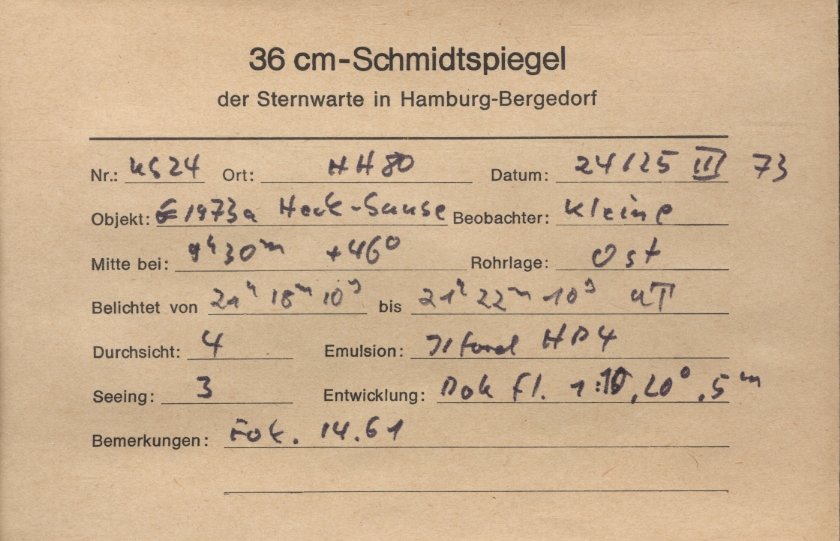 36 cm-Schmidtspiegel
der Sternwarte in Hamburg-Bergedorf
Nr.: KS24 Ort: HH80 Datum: 24/25 III 73
Objekt: 1973a Heck-Sause Beobachter: Kleine
Mitte bei: 9h30m +46° Rohrlage: Ost
Belichtet von 21h 18m 10s bis 21h 22m 10s UT
Durchsicht: 4 Emulsion: Ilford HP4
Seeing: 3 Entwicklung: Dok Fl. 1:10, 20°, 5m
Bemerkungen: Fok. 14.61